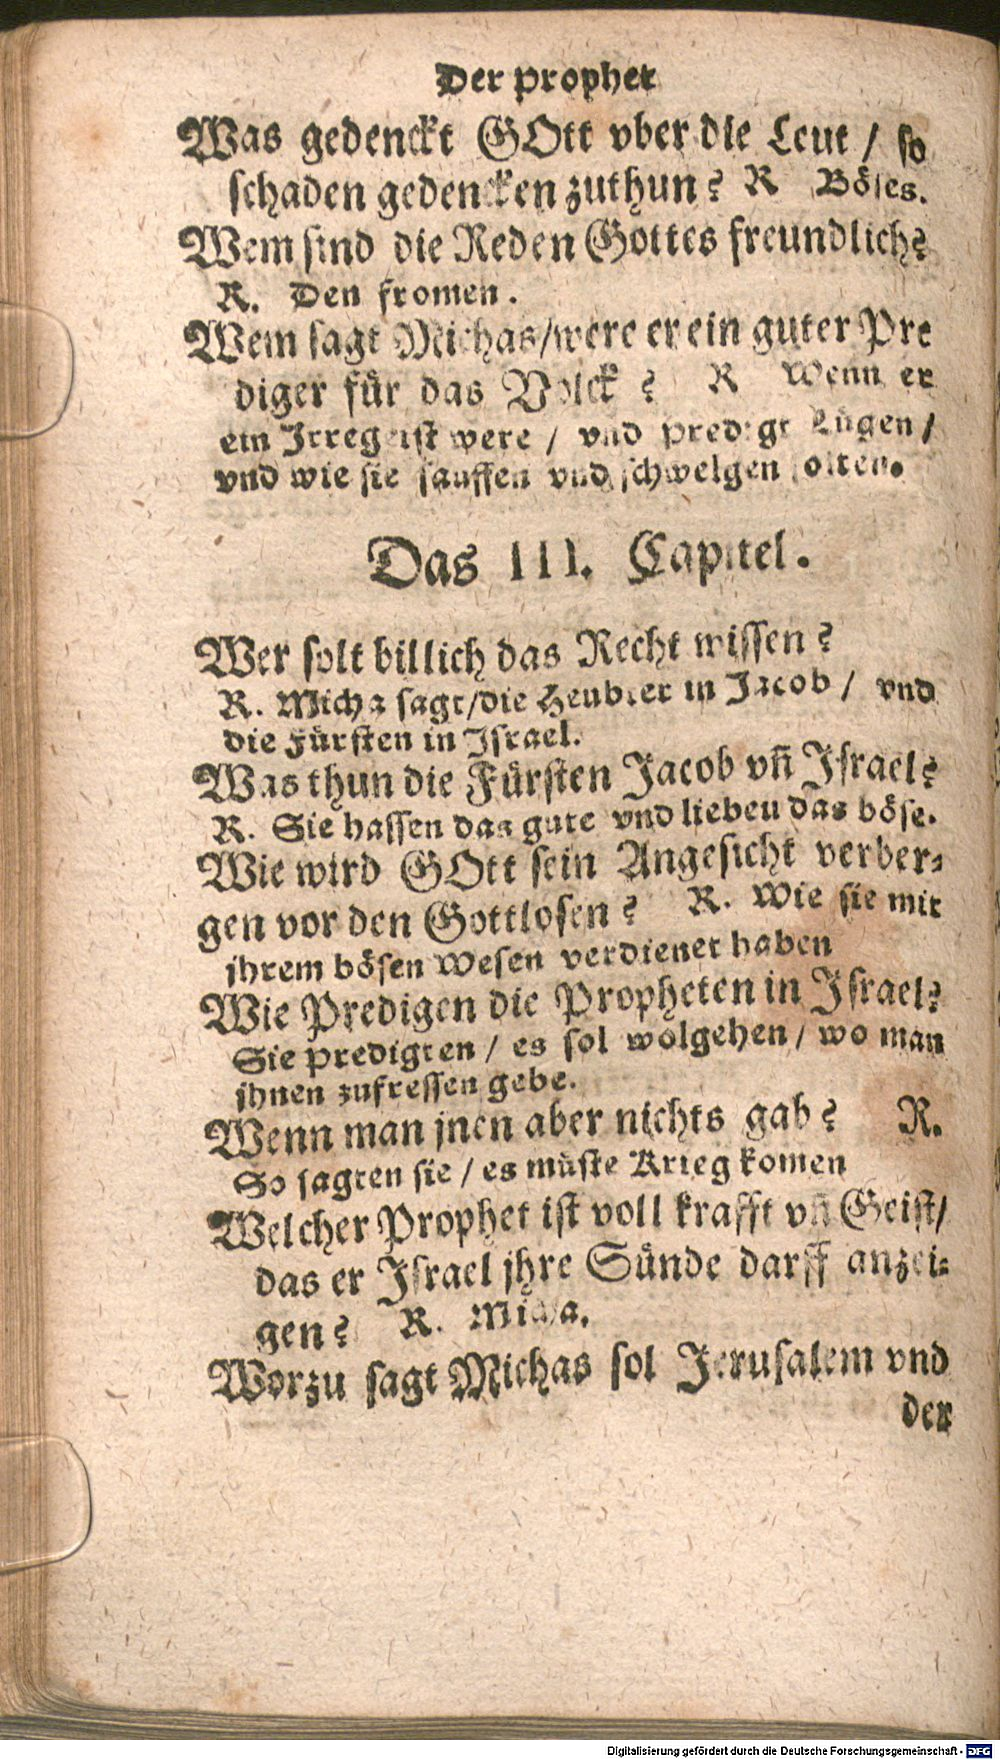 Der Prophet
Was gedenckt GOtt vber die Leut / so
schaden gedencken zuthun? R Böses.
Wem sind die Reden Gottes freundlich?
R. Den fromen.
Wem sagt Michas/were er ein guter Pre
diger für das Volck? R Wenn er
ein Irregeist were / vnd predigt Lügen /
vnd wie sie sauffen vnd schwelgen solten.
Das III. Capitel.
Wer solt billich das Recht wissen?
R. Micha sagt/die Heubter in Jacob / vnd
die Fürsten in Israel.
Was thun die Fürsten Jacob vn̄ Israel?
R. Sie hassen das gute vnd lieben das böse.
Wie wird GOtt sein Angesicht verber⸗
gen vor den Gottlosen? R. Wie sie mit
jhrem bösen Wesen verdienet haben
Wie Predigen die Propheten in Israel?
Sie predigten / es sol wolgehen / wo man
jhnen zufressen gebe.
Wenn man jnen aber nichts gab? R.
So sagten sie / es müste Krieg komen
Welcher Prophet ist voll krafft vn̄ Geist/
das er Israel jhre Sünde darff anzei⸗
gen? R. Micha.
Worzu sagt Michas sol Jerusalem vnd
der
Digitalisierung gefördert durch die Deutsche Forschungsgemeinschaft - DFG